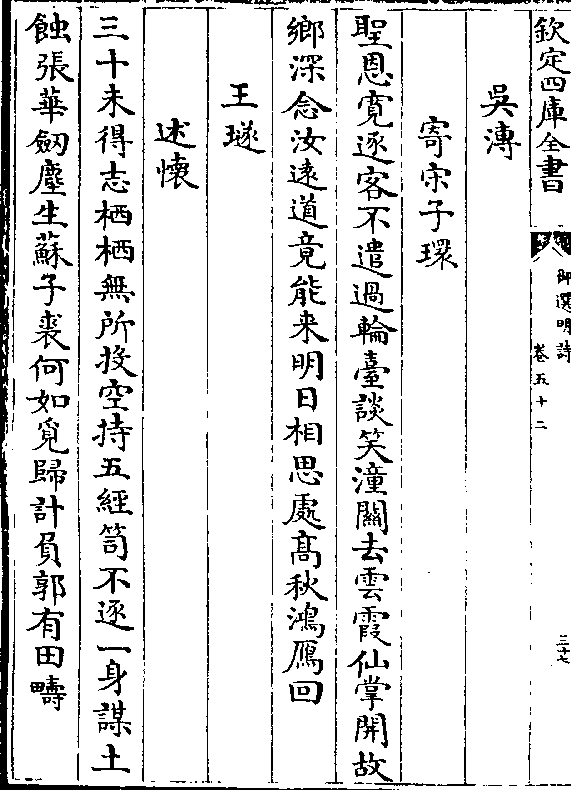 欽定四庫全書
御選明詩
卷五十二
三十七
吳溥
寄宋子環
聖恩寛逐客不遣過輪臺談笑潼關去雲霞仙掌開故
鄉深念汝逺道竟能来明日相思處髙秋鴻鴈回
王璲
述懷
三十未得志栖栖無所投空持五經笥不逐一身謀土
蝕張華劒塵生蘇子裘何如覓歸計負郭有田疇